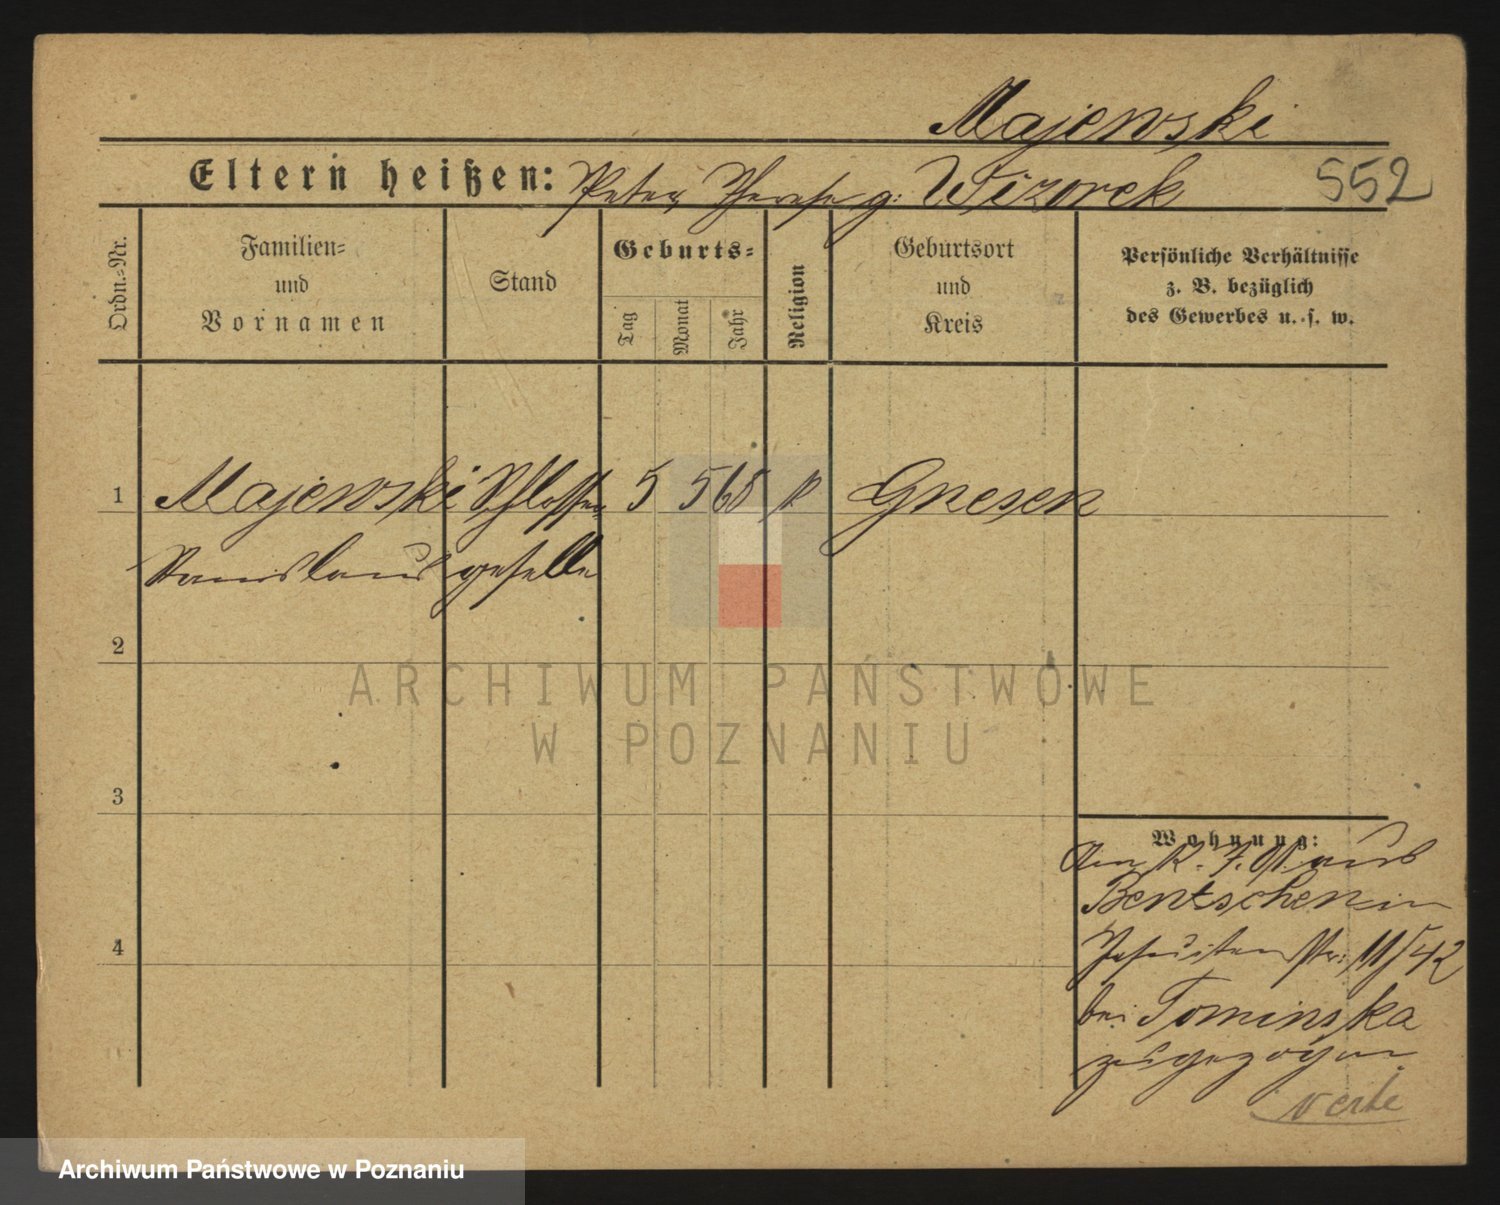 Majewski
Eltern heißen: Peter, Therese g: Wizorek 552
Ordn.-Nr.
Familien-
und
Vornamen
Stand
Geburts-
Tag
Monat
Jahr
Religion
Geburtsort
und
Kreis
Persönliche Verhältnisse
z. B. bezüglich
des Gewerbes u. s. w.
1 Majewski Schlosser 5 5 68 k Gnesen
Stanislaus geselle
2
3
4
Wohnung:
aus
Bentschen in
Jesuitenstr: 11/42
bei Tominska
zugezogen
verte
ARCHIWUM PAŃSTWOWE
W POZNANIU
Archiwum Państwowe w Poznaniu